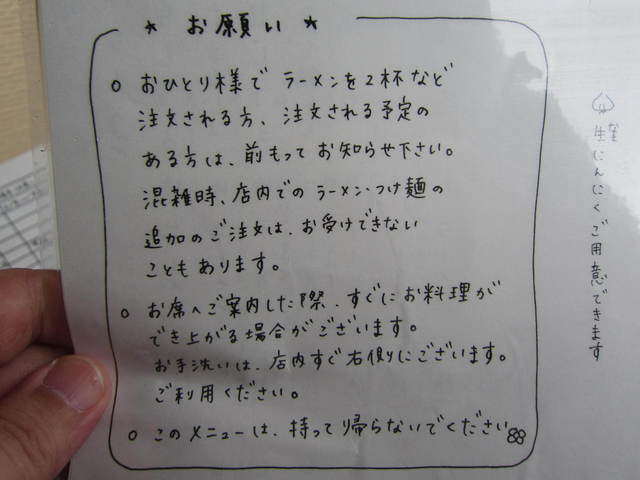 ★ お願い ★
○ おひとり様で ラーメンを2杯など
注文される方、注文される予定の
ある方は、前もって お知らせ下さい。
混雑時、店内での ラーメン・つけ麺の
追加のご注文は、お受けできない
こともあります。
○ お席へご案内した際、すぐにお料理が
でき上がる場合がございます。
お手洗いは、店内すぐ右側にございます。
ご利用ください。
○ このメニューは、持って帰らないでください
生にんにくご用意できます
なま